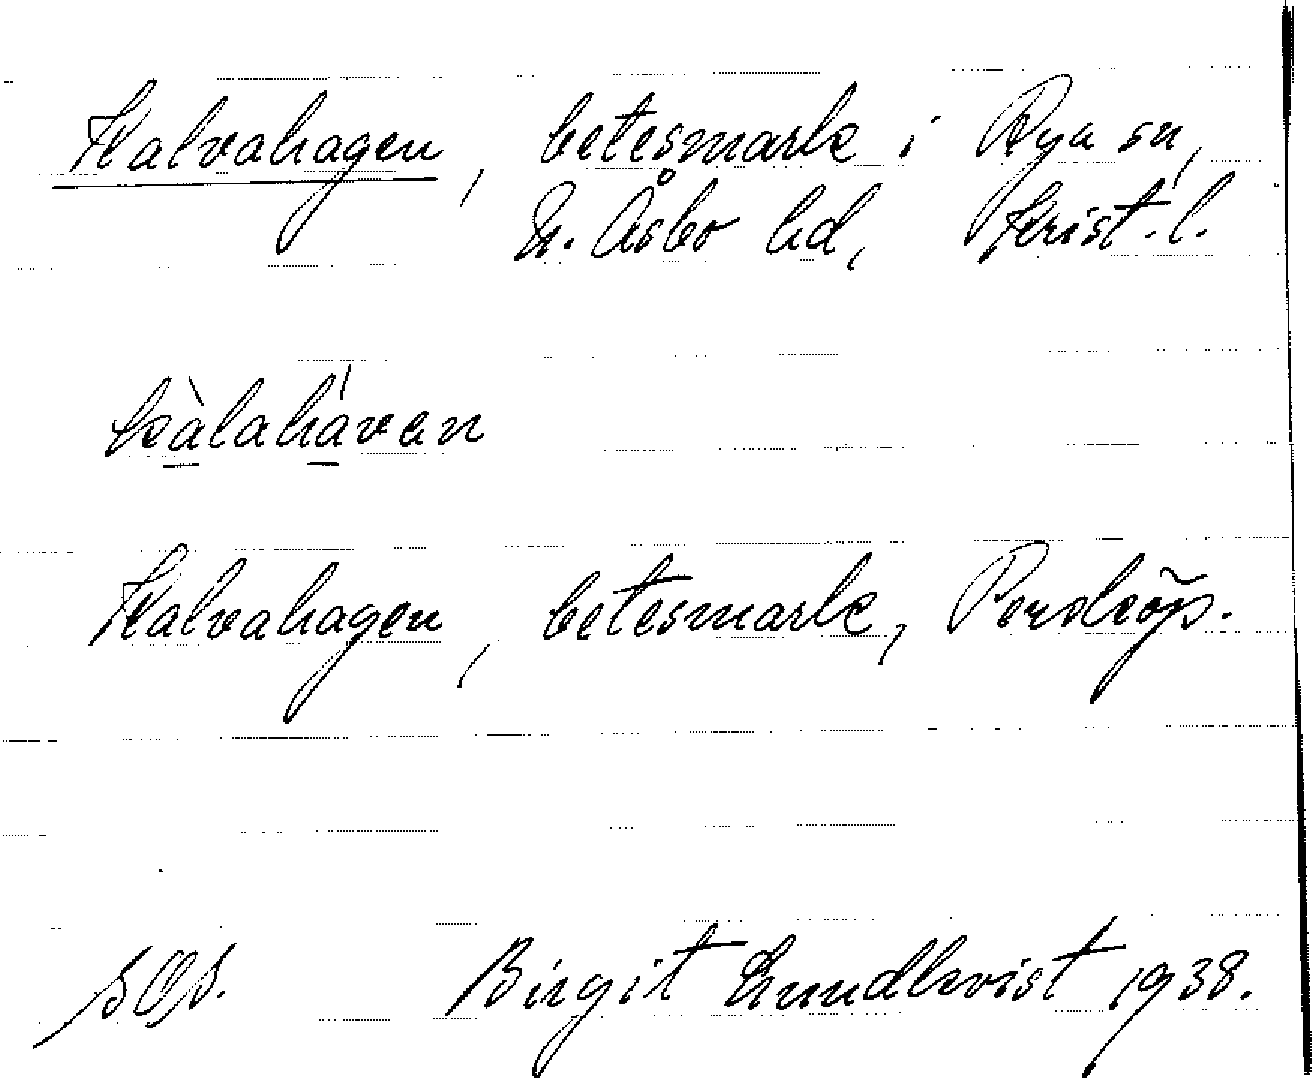 Kalvahagen, betesmark i Rya sn,
N. Åsbo hd, Krist. l.
kàlaháven
Kalvahagen, betesmark, Perskõp.
SOS. Birgit Lundkvist 1938.